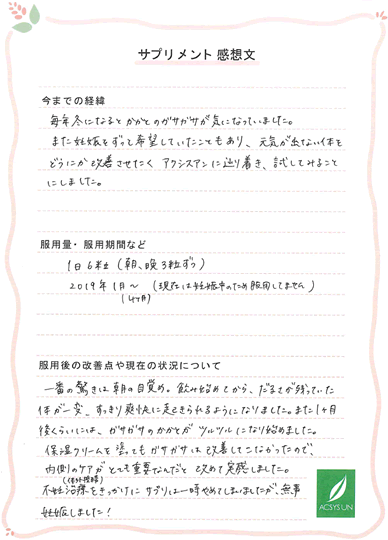 サプリメント 感想文
今までの経緯
毎年冬になるとかかとのガサガサが気になっていました。
また妊娠をずっと希望していたこともあり、元気が出ない体を
どうにか改善させたく アクシスアンに辿り着き、試してみること
にしました。
服用量・服用期間など
1日6粒（朝、晩3粒ずつ）
2019年1月〜（現在は妊娠中のため服用してません）
（4ヶ月）
服用後の改善点や現在の状況について
一番の驚きは朝の目覚め。飲み始めてから、だるさが残っていた
体が一変、すっきり爽快に起きられるようになりました。また1ヶ月
後くらいには、ガサガサのかかとが ツルツルになり始めました。
保湿クリームを塗ってもガサガサは改善してこなかったので、
内側のケアがとても重要なんだと 改めて実感しました。
（体外授精）
不妊治療をきっかけに サプリは一時やめてしまいましたが、無事
妊娠しました！
ACSYS UN